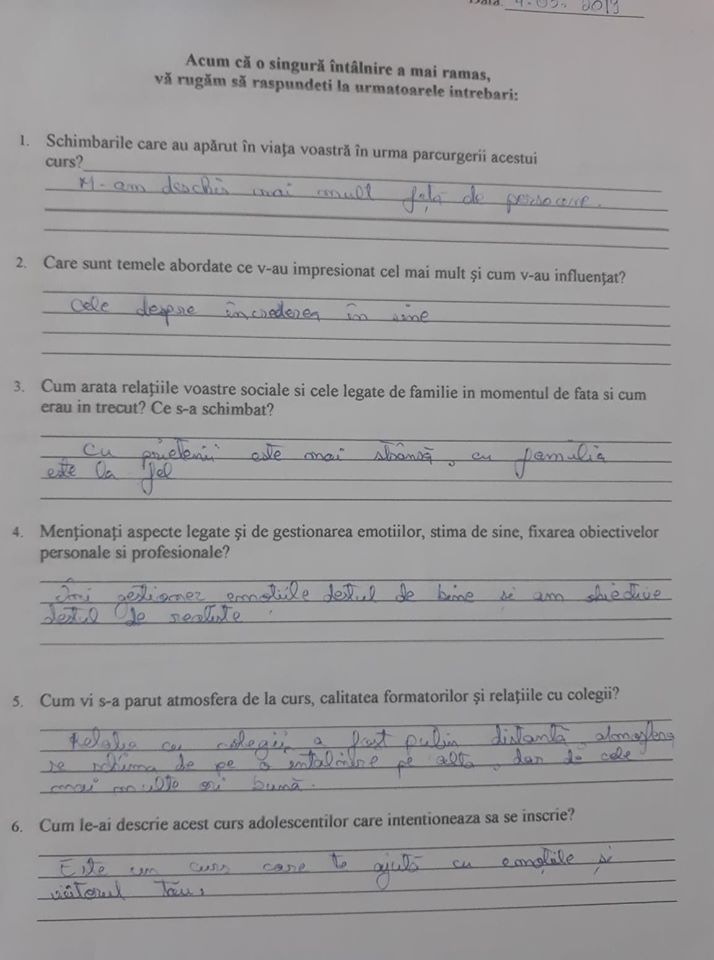 Data 9.03.2019
Acum că o singură întâlnire a mai ramas,
vă rugăm să raspundeti la urmatoarele intrebari:
1. Schimbarile care au apărut în viața voastră în urma parcurgerii acestui
curs?
M-am deschis mai mult față de persoane.
2. Care sunt temele abordate ce v-au impresionat cel mai mult și cum v-au influențat?
Cele despre încrederea în sine
3. Cum arata relațiile voastre sociale si cele legate de familie in momentul de fata si cum
erau in trecut? Ce s-a schimbat?
Cu prietenii este mai strânsă, cu familia
este la fel
4. Menționați aspecte legate și de gestionarea emotiilor, stima de sine, fixarea obiectivelor
personale si profesionale?
Îmi gestionez emoțiile destul de bine si am obiective
destul de realiste.
5. Cum vi s-a parut atmosfera de la curs, calitatea formatorilor și relațiile cu colegii?
Relația cu colegii a fost puțin distantă, atmosfera
se schima de pe o întâlnire pe alta, dar de cele
mai multe ori bună.
6. Cum le-ai descrie acest curs adolescentilor care intentioneaza sa se inscrie?
Este un curs care te ajută cu emoțiile și
viitorul tău.